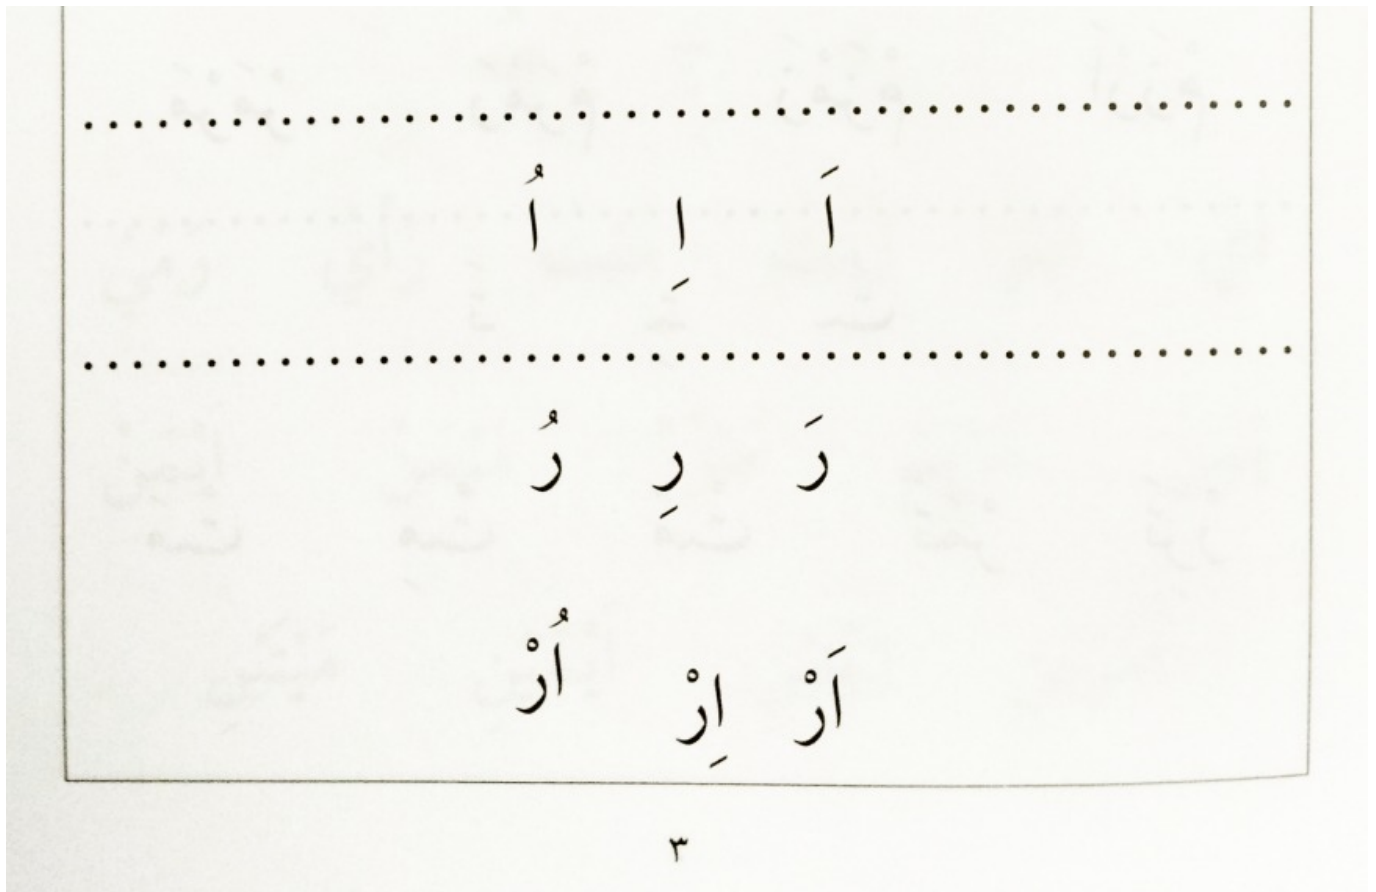 اَ اِ اُ
رَ رِ رُ
اَرْ اِرْ اُرْ
٣